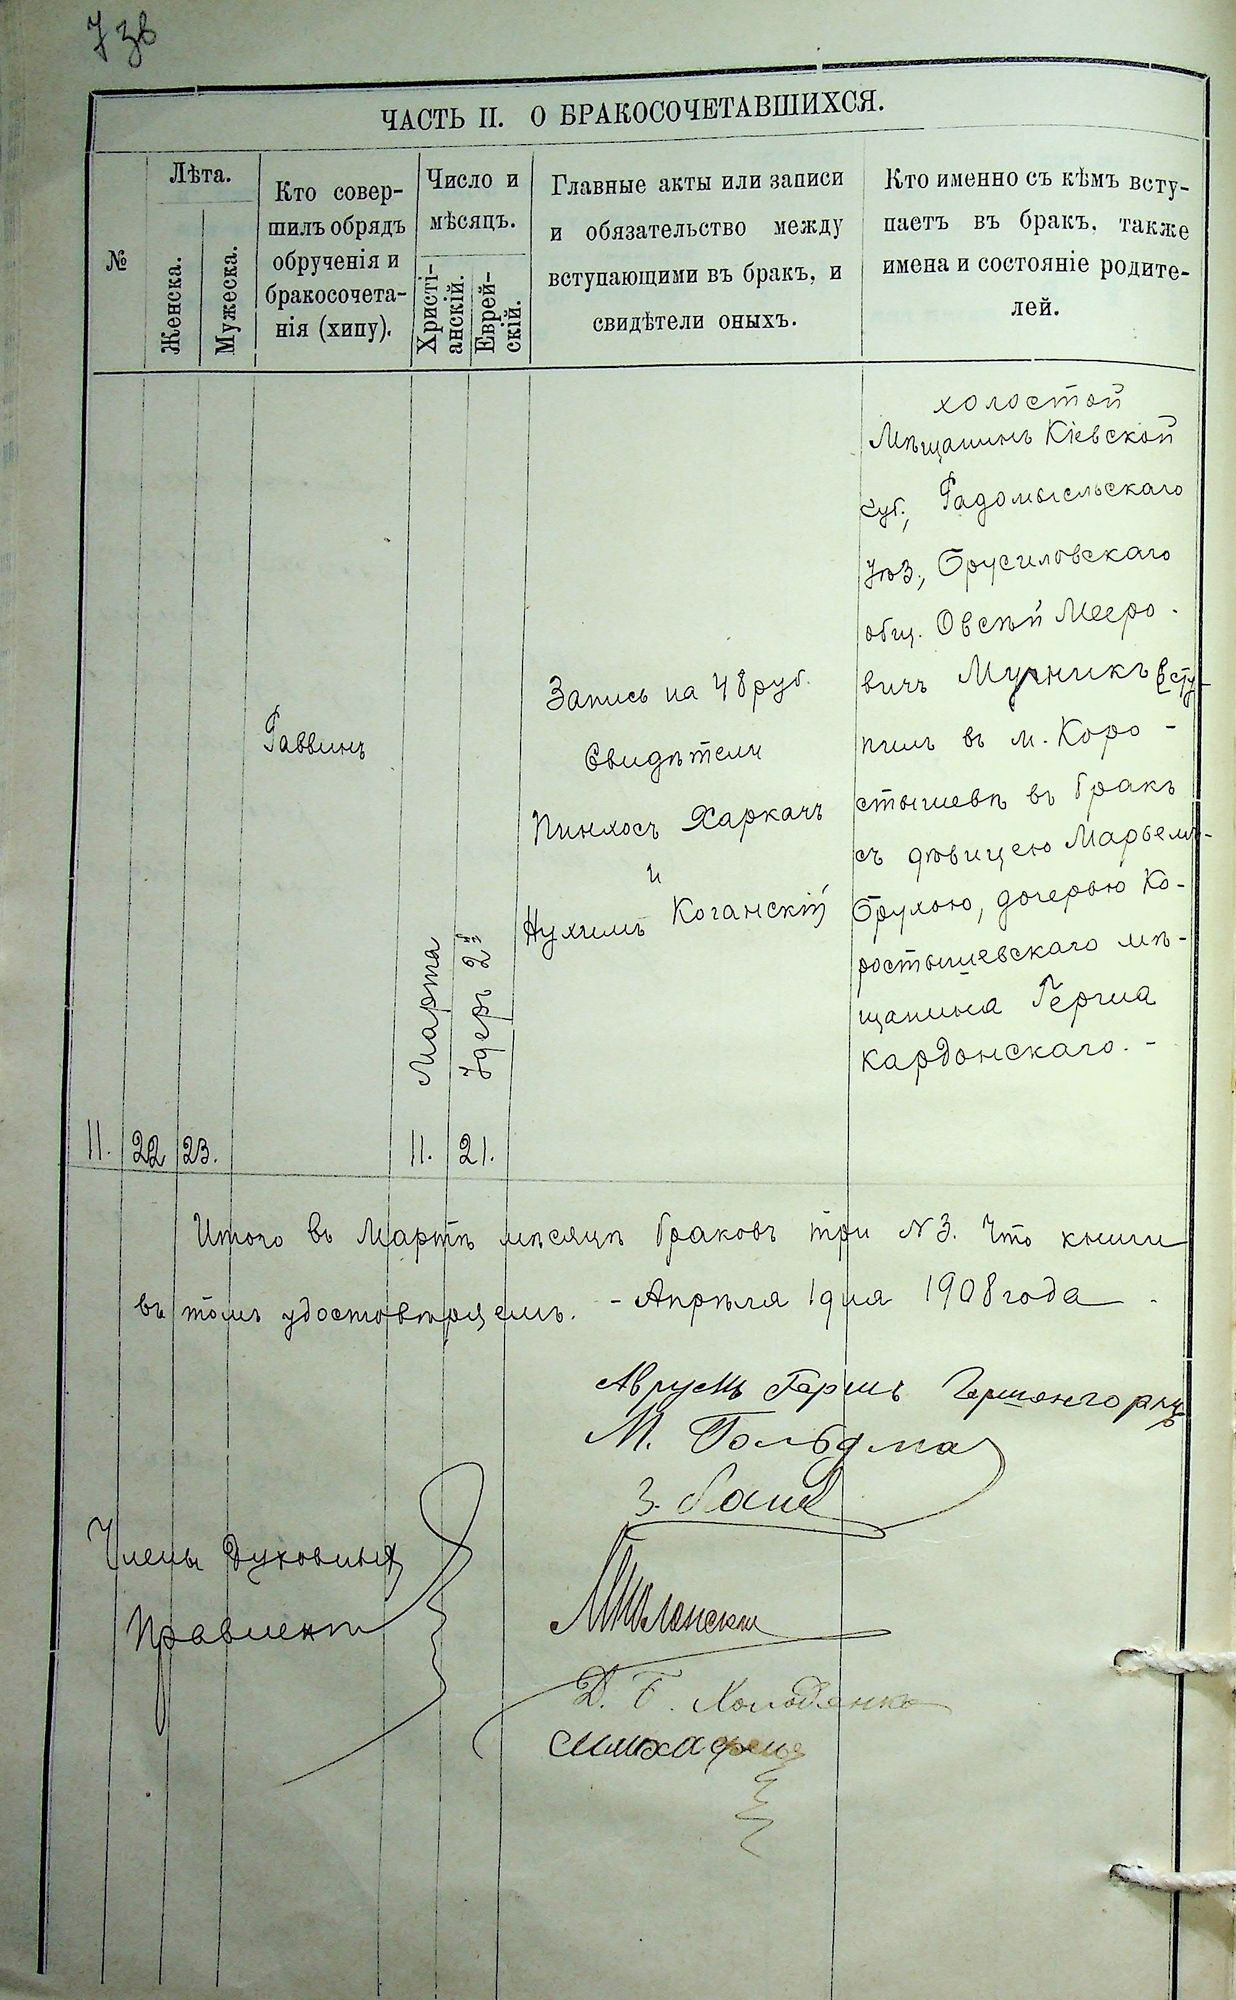 7 зв
ЧАСТЬ II. О БРАКОСОЧЕТАВШИХСЯ.
№
Лѣта.
Женска.
Мужеска.
Кто совер-
шилъ обрядъ
обрученія и
бракосочета-
нія (хипу).
Число и
мѣсяцъ.
Христі-
анскій.
Еврей-
скій.
Главные акты или записи
и обязательство между
вступающими въ бракъ, и
свидѣтели оныхъ.
Кто именно съ кѣмъ всту-
паетъ въ бракъ, также
имена и состояніе родите-
лей.
11.
22
23.
Раввинъ
Марта
11.
Удеръ 2й
21.
Запись на 48 руб.
Свидѣтели
Пинхосъ Харкачъ
и
Нухимъ Коганскій
холостой
Мѣщанинъ Кіевской
Губ., Радомысльскаго
Уѣз., Брусиловскаго
общ. Овсѣй Мееро-
вичъ Мучникъ всту-
пилъ въ м. Коро-
стышевѣ въ бракъ
съ дѣвицею Марьемъ-
Брухою, дочерью Ко-
ростышевскаго мѣ-
щанина Гершa
Кардонскаго. -
Итого въ Мартѣ мѣсяцѣ браковъ три №3. Что книги
въ томъ удостовѣряемъ. - Апрѣля 1 дня 1908 года
Аврумъ Гершъ
М. Гольдма
Члены Духовныхъ
Правлені
Д. Б. Холоденко